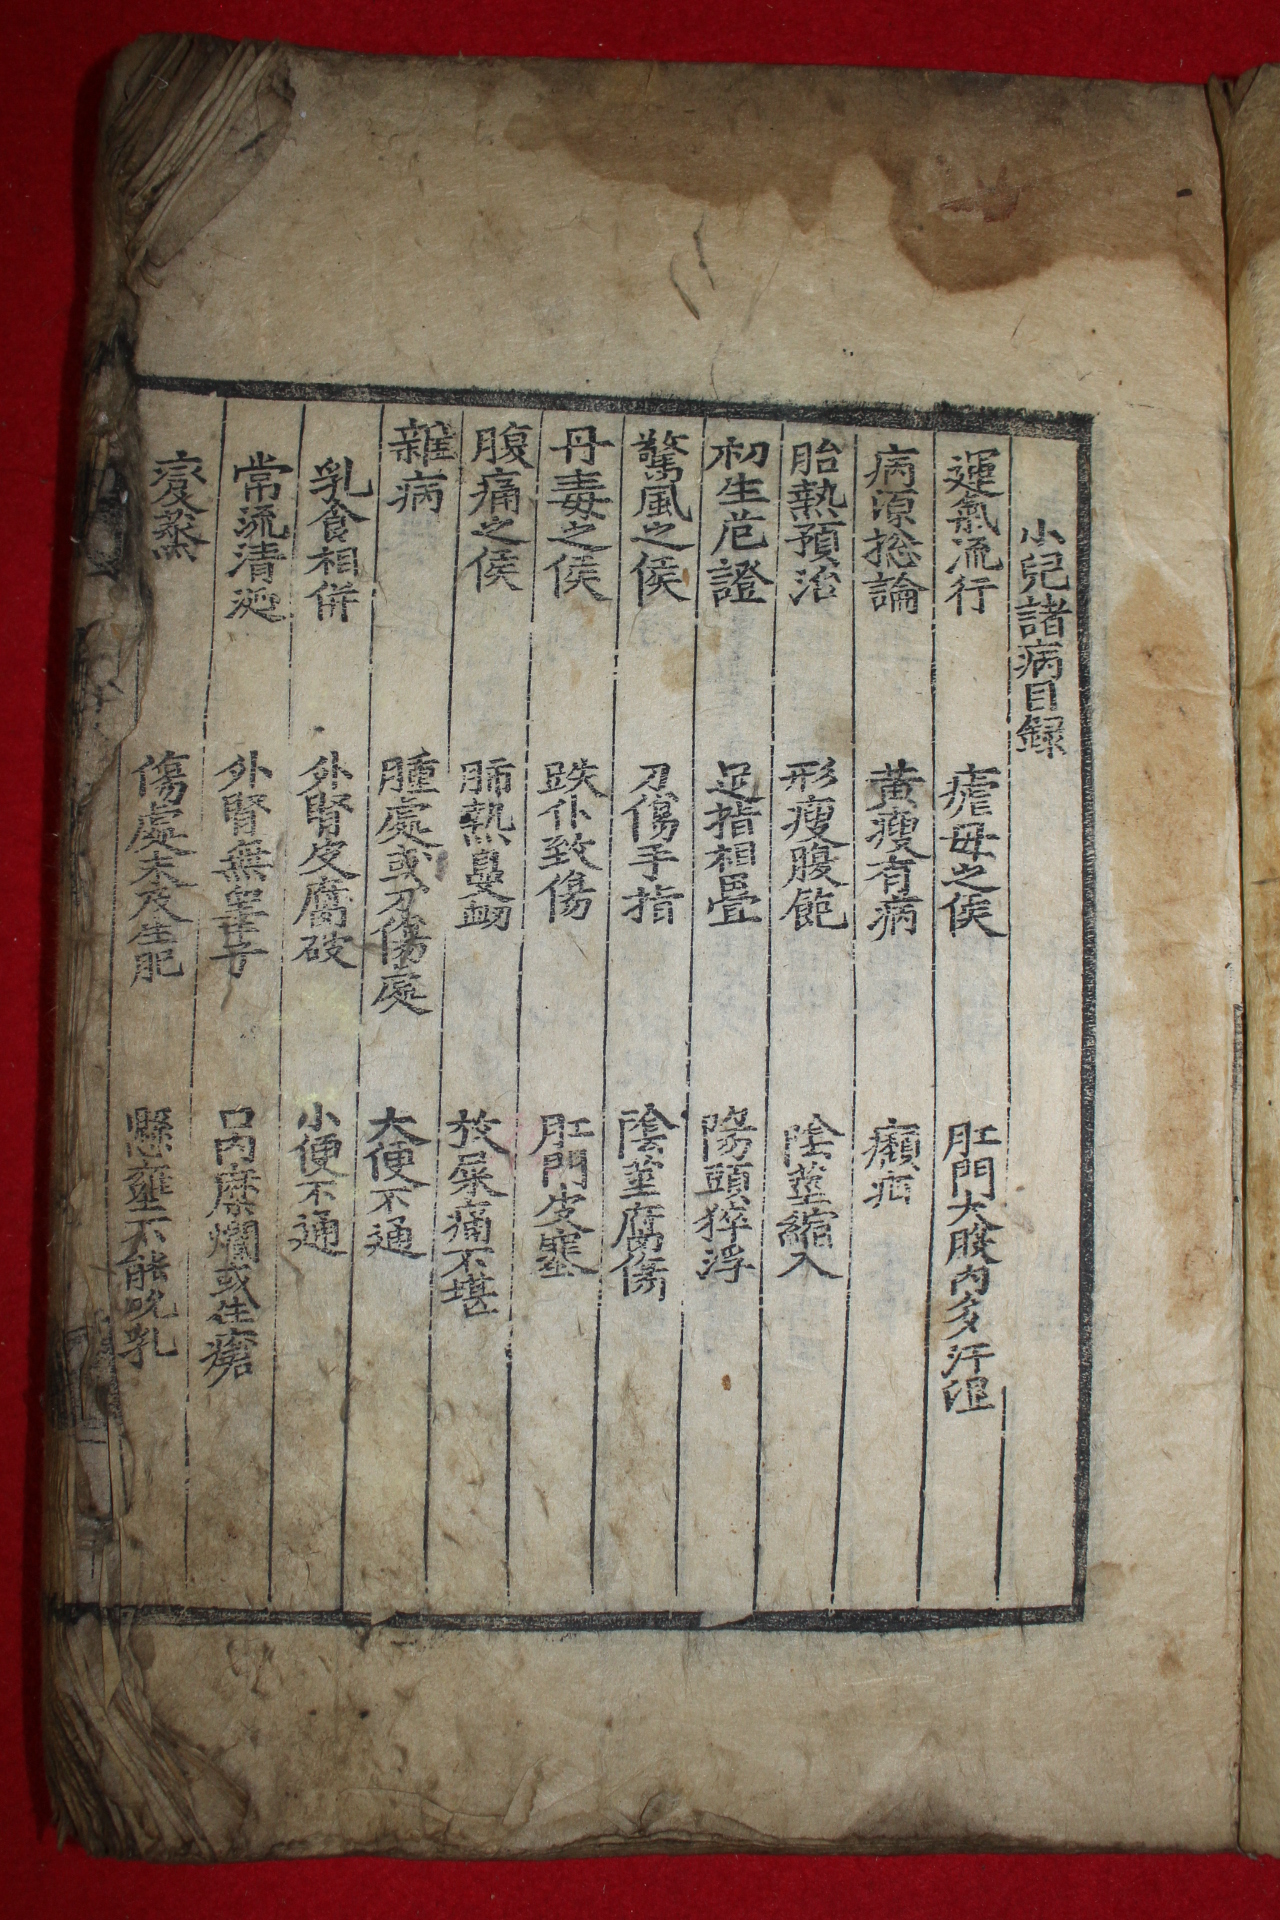 小兒諸病目録
運氣流行 瘧母之侯 肛門大腹內多汗沮
病源捴論 黃瘦有病 癩疝
胎熱預治 形瘦腹飽 陰莖縮入
初生危證 足指相疊 陽頭猝浮
驚風之侯 刀傷手指 陰莖腐傷
丹毒之侯 跌仆致傷 肛門皮塞
腹痛之侯 肺熱鼻衄 放屎痛不堪
雜病 腫處或刀傷處 大便不通
乳食相倂 外腎皮腐破 小便不通
常流清涎 外腎無睪子 口內糜爛或生瘡
痎蒸 傷處未及生肥 懸壅不能吮乳